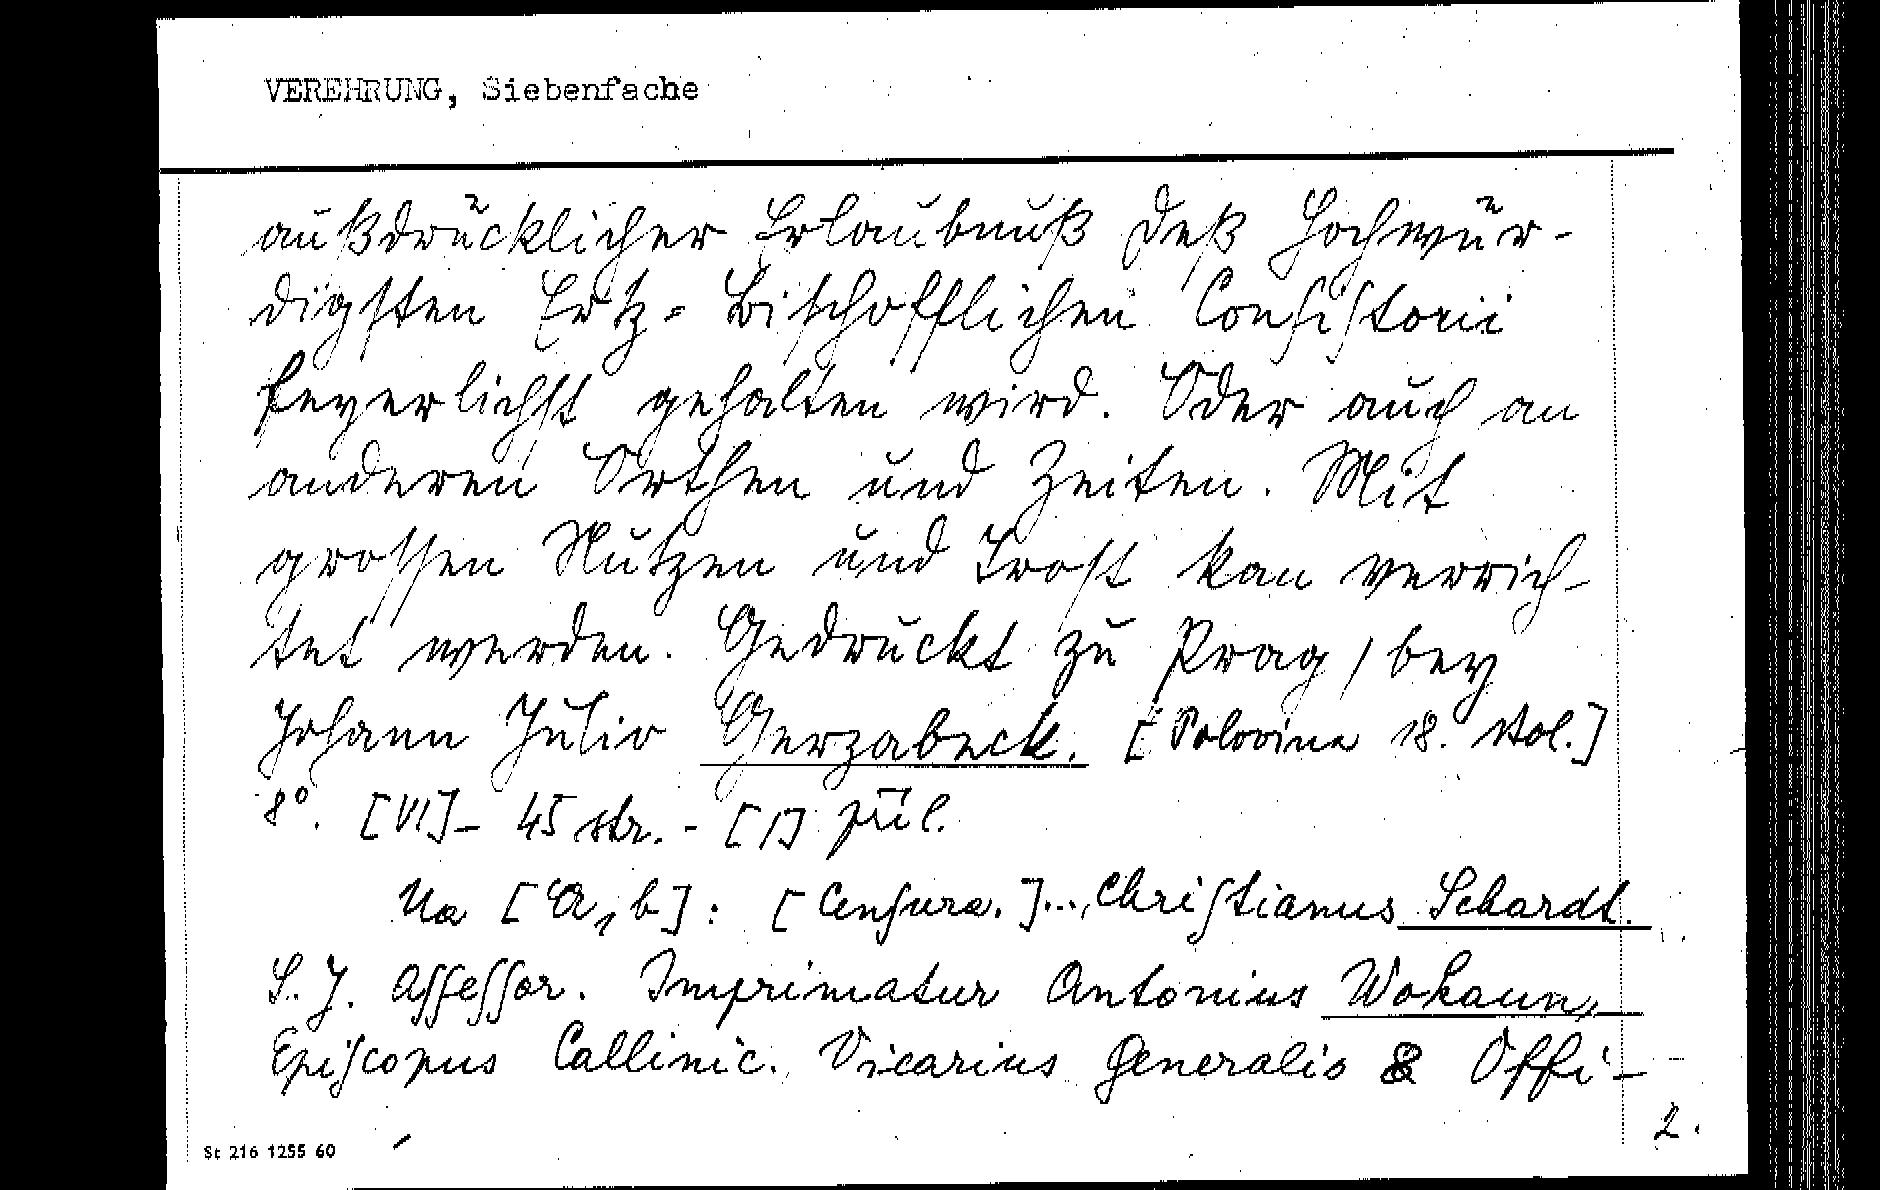 VEREHRUNG, Siebenfache
außdrücklicher Erlaubnuß deß Hochwür-
digsten Ertz-Bischofflichen Consistorii
feyerlichst gehalten wird. Oder auch an
anderen Orthen und Zeiten. Mit
grossen Nutzen und Trost kan verrich-
tet werden. Gedruckt zu Prag / bey
Johann Julio Gerzabeck. [Polovina 18. stol.]
8°. [VI] - 45 str. - [1] příl.
Na [A1b]: [Censura.] ... Christianus Schardt.
S. J. Assessor. Imprimatur Antonius Wokaun,
Episcopus Callinic. Vicarius Generalis & Offi-
2.
St 216 1255 60